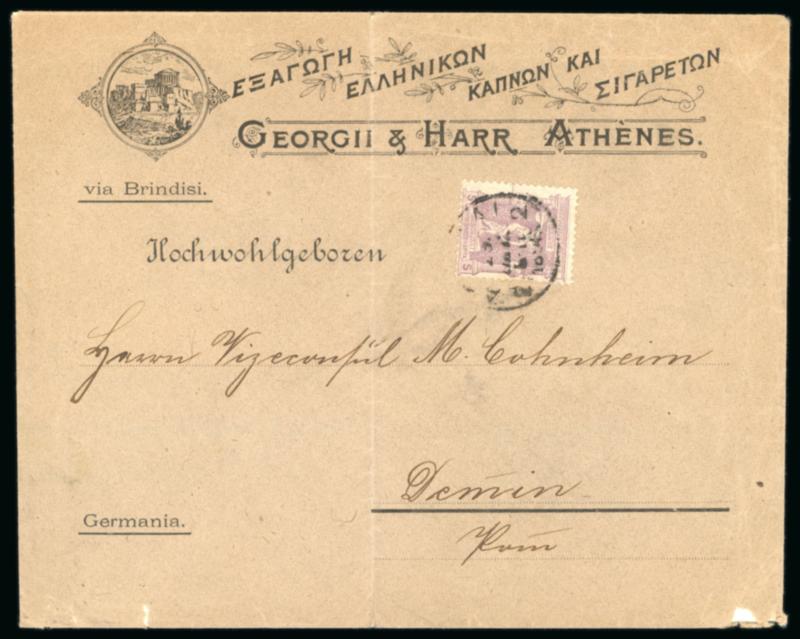 ΕΞΑΓΩΓΗ ΕΛΛΗΝΙΚΩΝ ΚΑΠΝΩΝ ΚΑΙ ΣΙΓΑΡΕΤΩΝ
GEORGII & HARR ATHÈNES.
via Brindisi.
Hochwohlgeboren
Herrn Vizeconsul M. Cohnheim
Demin
Germania.
Pom